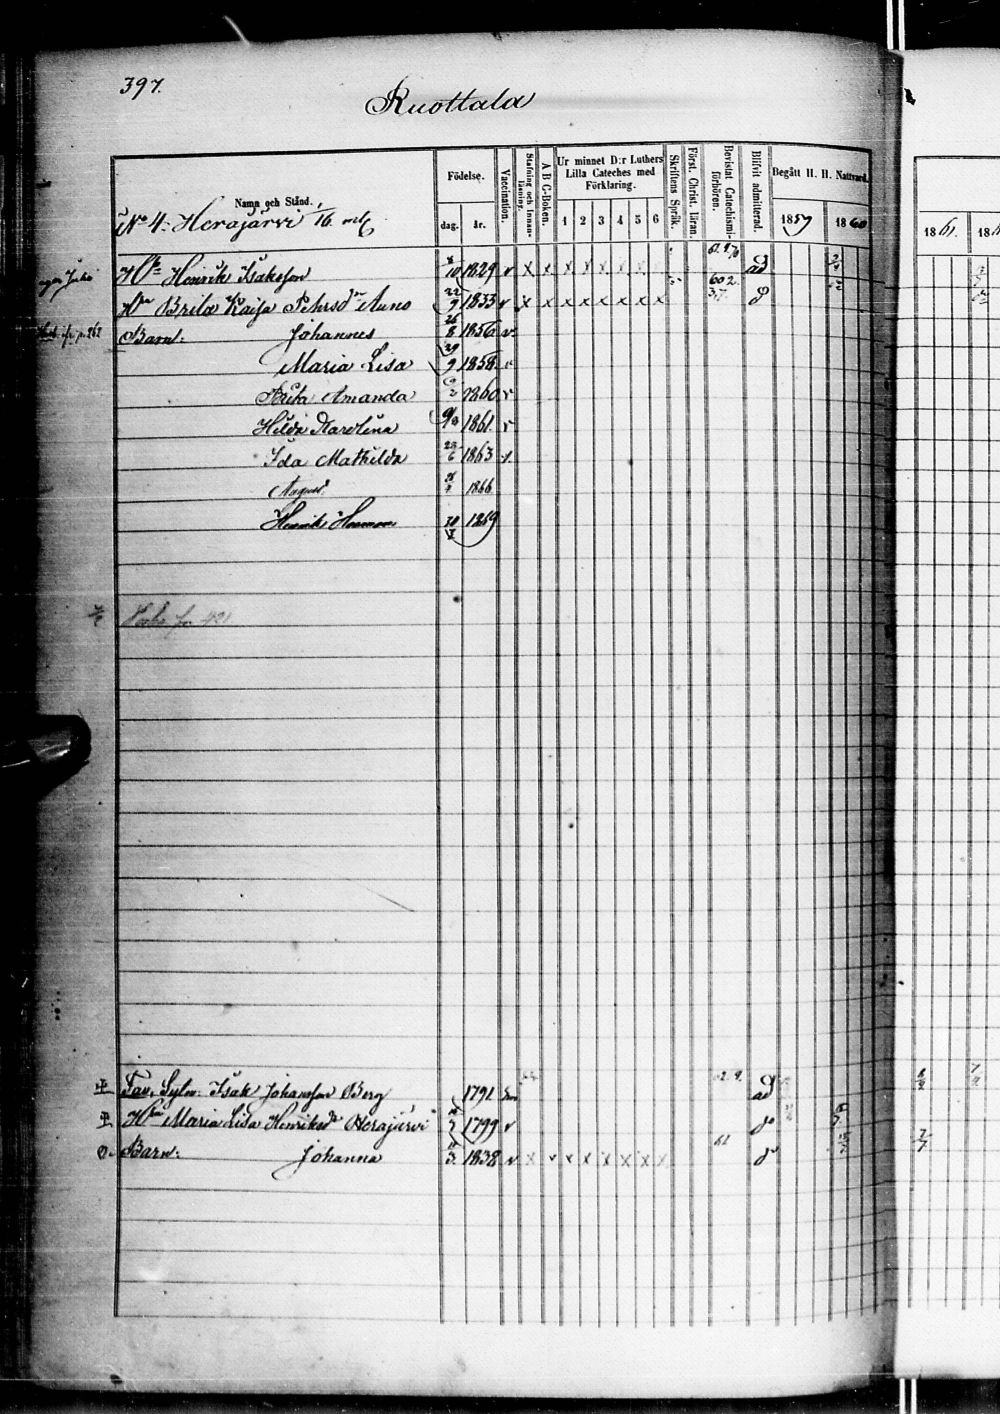 397.
Ruottala
Namn och Stånd.
Födelse.
dag. år.
Vaccination.
Stafning och Innan-läsning.
A B C-Boken.
Ur minnet D:r Luthers Lilla Cateches med Förklaring.
1 2 3 4 5 6
Skriftens Språk.
Först. Christ. läran.
Bevistat Catechismi-förhören.
Blifvit admitterad.
Begått H. H. Nattvard.
1859 1860
1861.
No 4. Herajärvi 1/16 mtl
Henrik Isaksson 10 1829 v x x x x x x x x ad
Brita Kaisa Pehrsdr Auno 22/9 1833 v x x x x x x x x do
Barn: Johannes 26/8 1856 v
Maria Lisa 29/9 1858 v
Brita Amanda 1860 v
Hilda Karolina 1861. v
Ida Mathilda 23/6 1863 v
August 1866
Henrik Herman 1869
421
Isak Johansson Berg 1791 ad
Maria Lisa Henriksdr Herajärvi 1799 v do
Barn: Johanna 3 1838 v x x x x x x x x 61 do